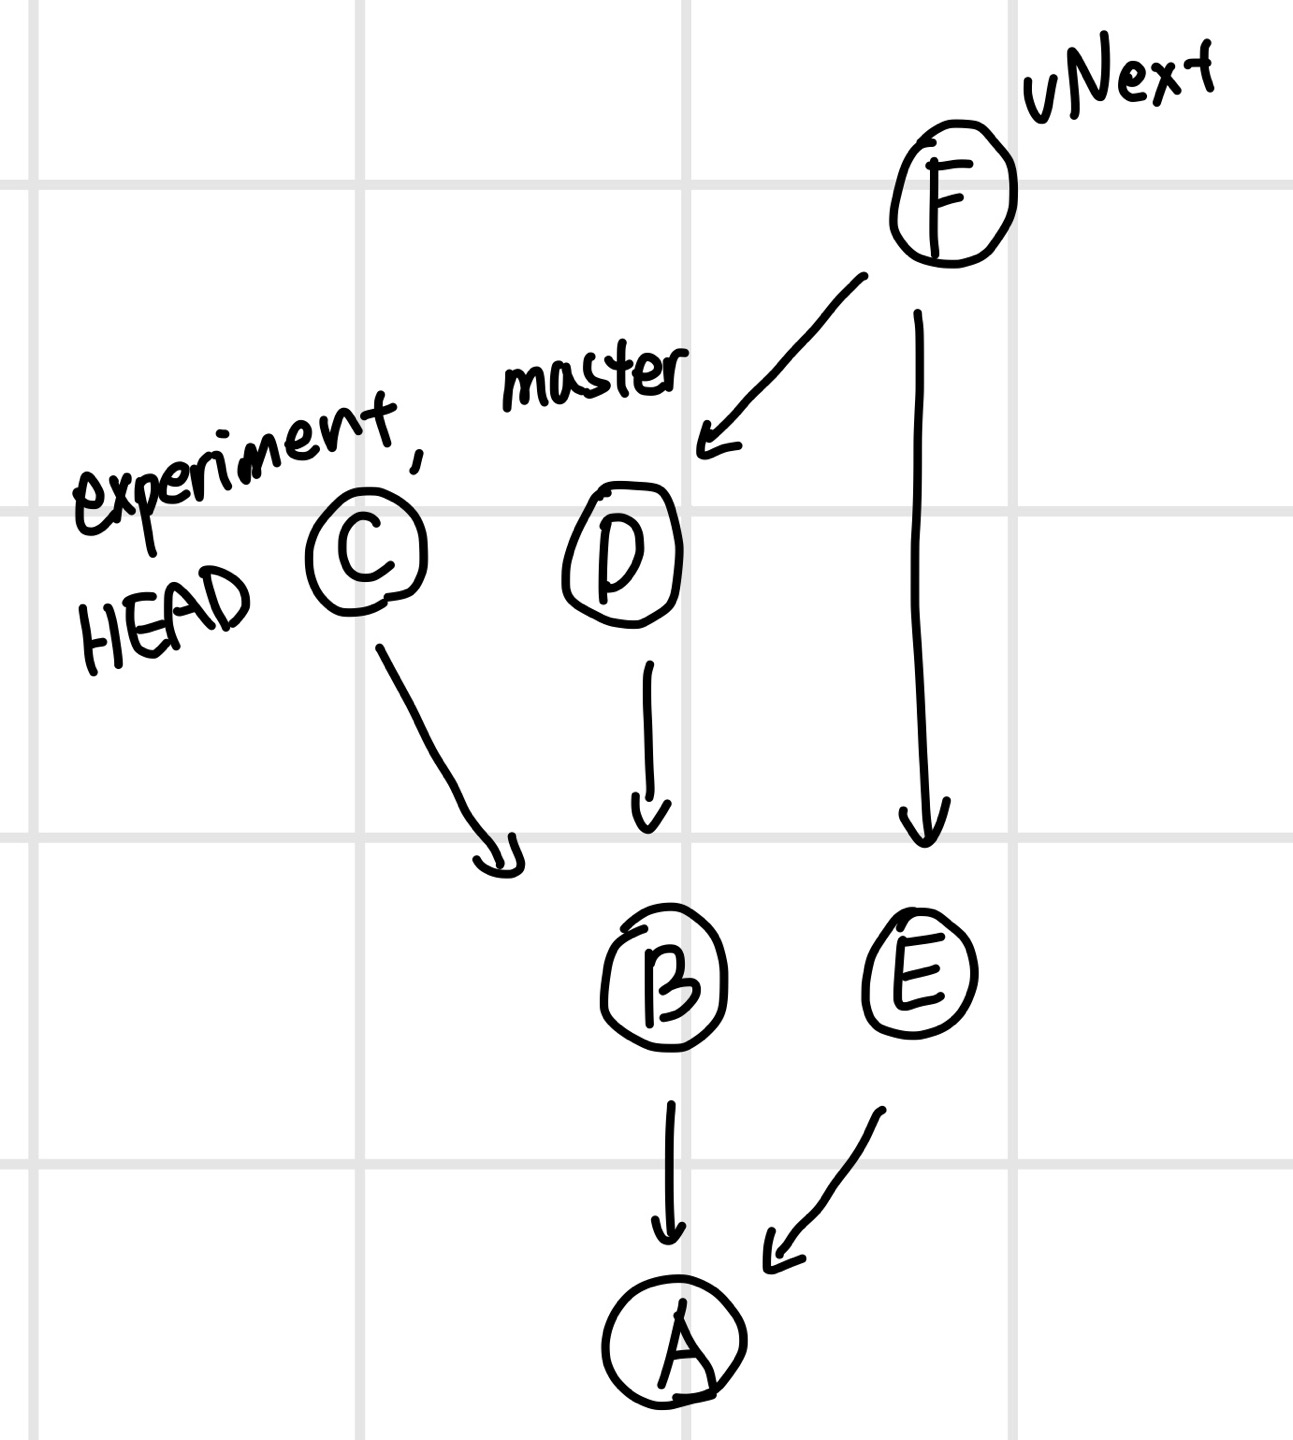 vNext
F
master
experiment,
HEAD
C
D
B
E
A